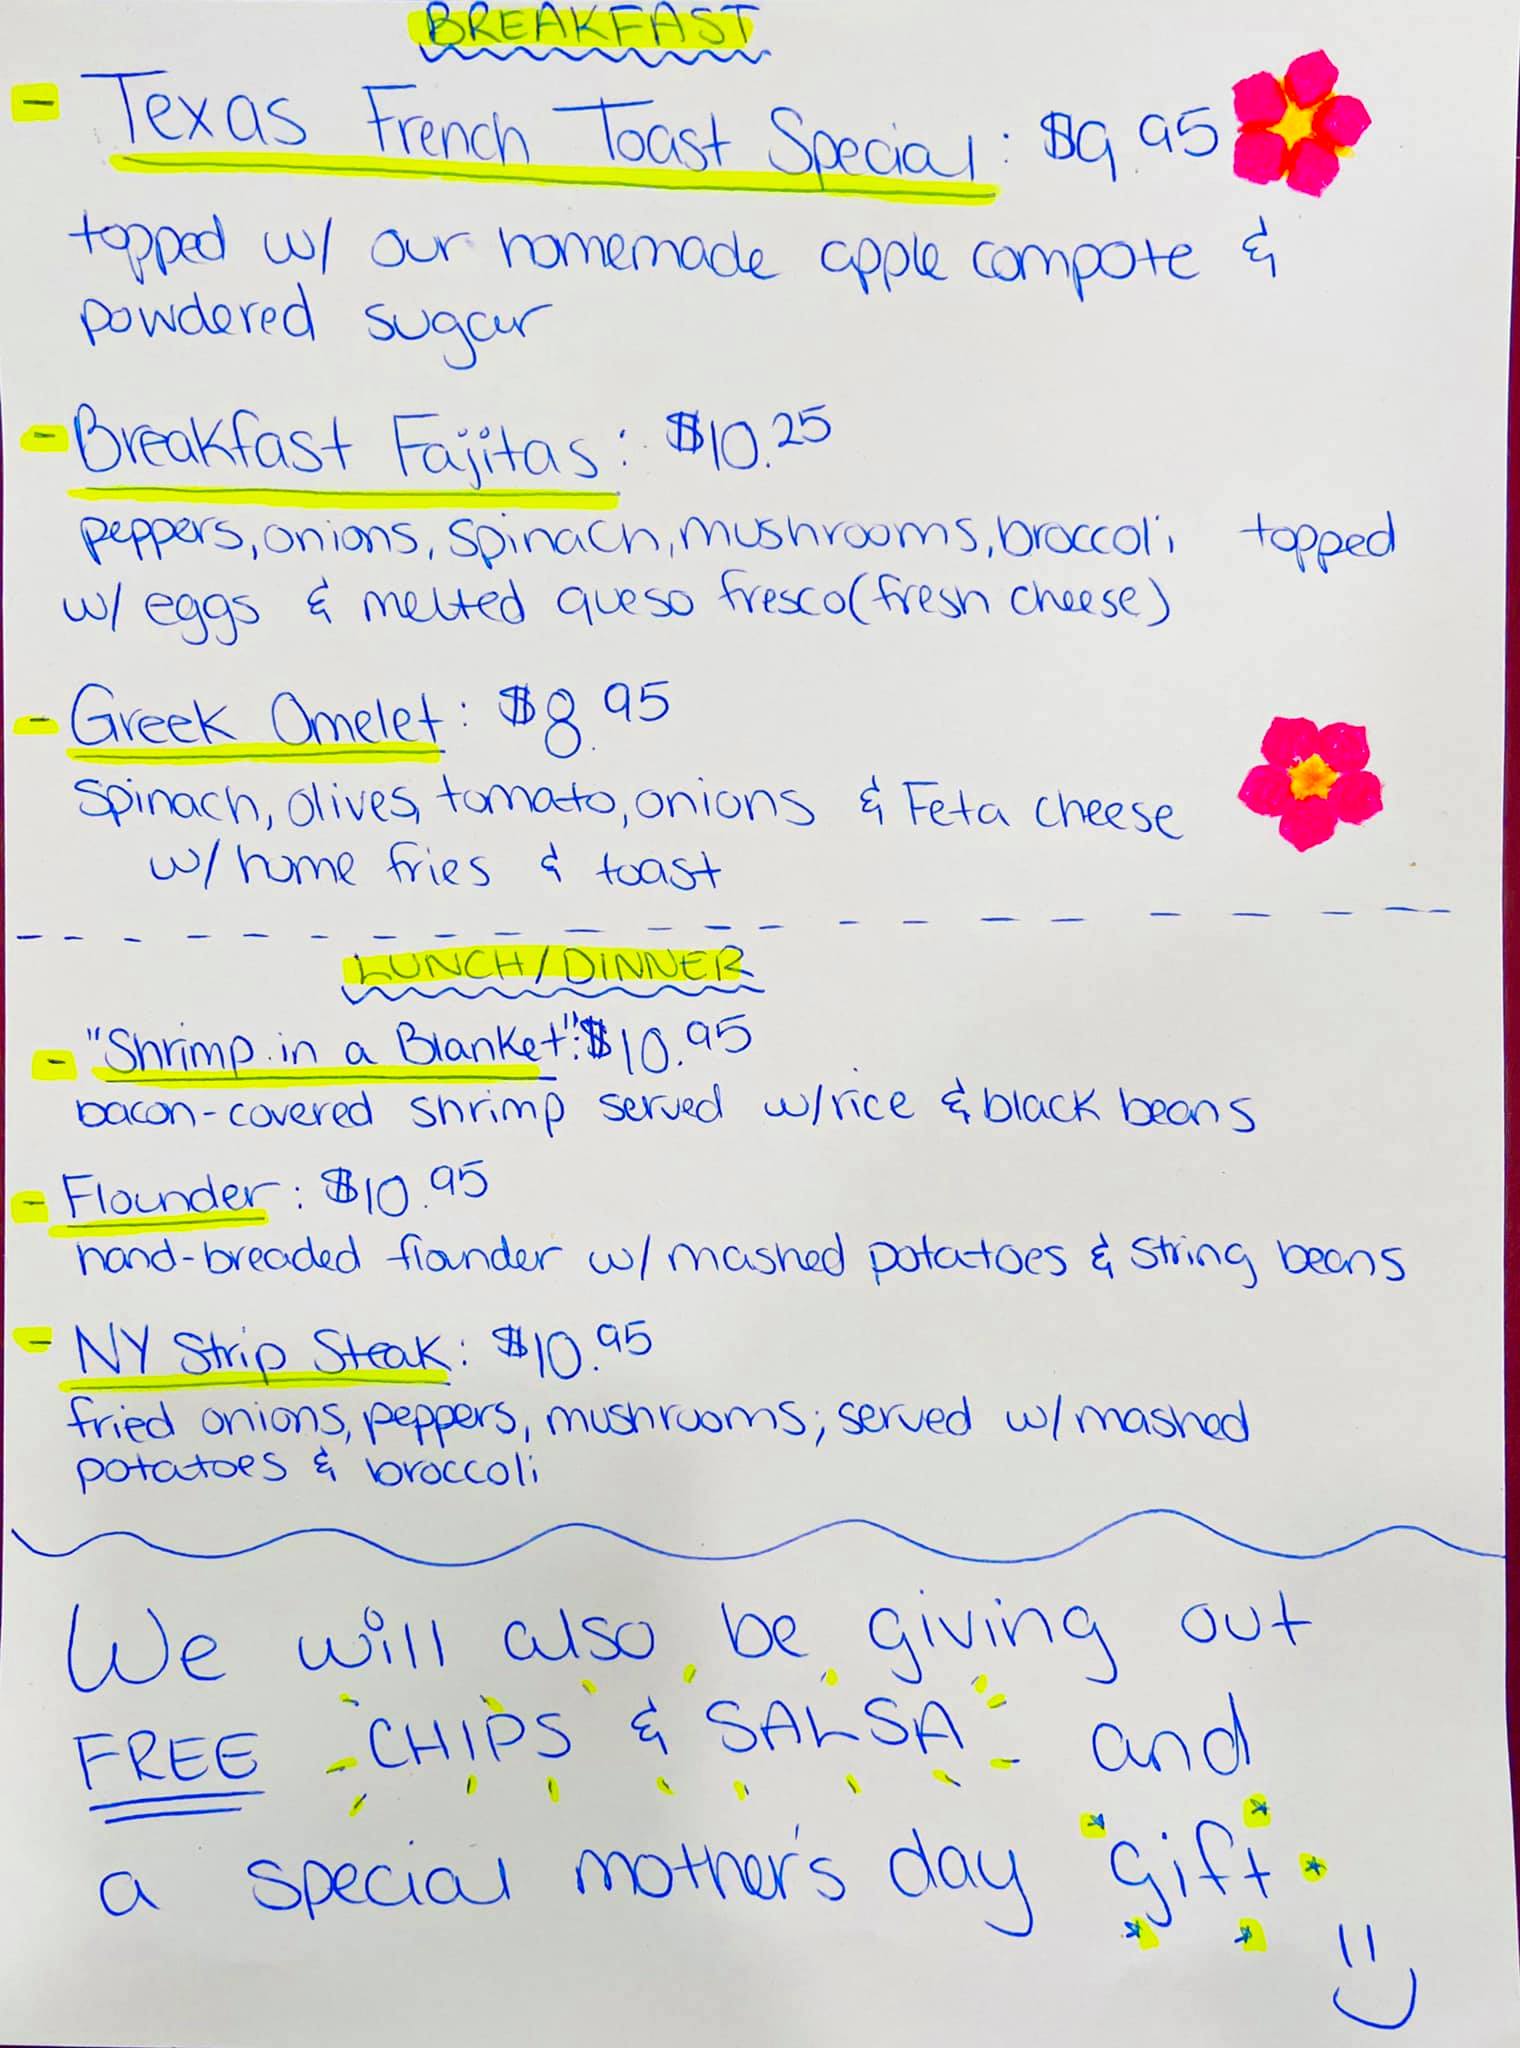 BREAKFAST
- Texas French Toast Special: $9.95
topped w/ our homemade apple compote &
powdered sugar
- Breakfast Fajitas: $10.25
peppers, onions, spinach, mushrooms, broccoli topped
w/ eggs & melted queso fresco (fresh cheese)
- Greek Omelet: $8.95
spinach, olives, tomato, onions & Feta cheese
w/ home fries & toast
LUNCH/DINNER
- "Shrimp in a Blanket": $10.95
bacon-covered shrimp served w/ rice & black beans
- Flounder: $10.95
hand-breaded flounder w/ mashed potatoes & string beans
- NY Strip Steak: $10.95
fried onions, peppers, mushrooms; served w/ mashed
potatoes & broccoli
We will also be giving out
FREE CHIPS & SALSA and
a special mother's day gift